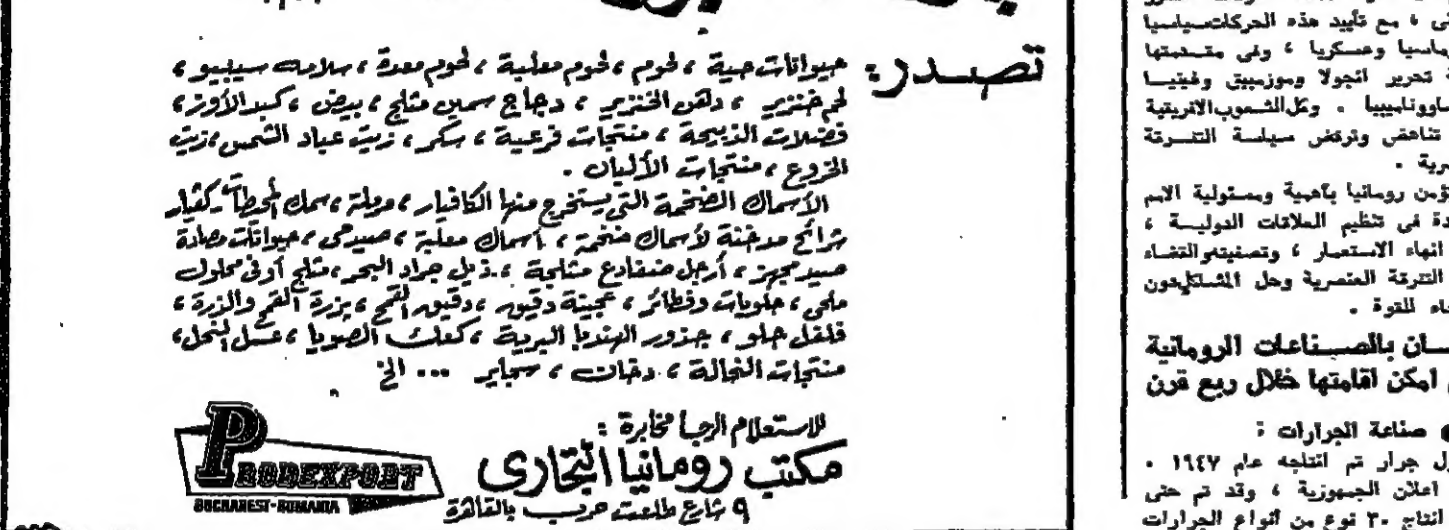 تصدر:
حيوانات حية ، لحوم ، لحوم معلبة ، لحوم معدة ، سلامه سيبيو ،
لحم خنزير ، دهن الخنزير ، دجاج سمين مثلج ، بيض ، كبد الأوز ،
فضلات الذبيحة ، منتجات فرعية ، سكر ، زيت عباد الشمس ، زيت
الخروع ، منتجات الألبان .
الأسماك الضخمة التي يستخرج منها الكافيار ، سمك
شرائح مدخنة لأسماك ضخمة ، أسماك معلبة ، صيد حى ، حيوانات مصادة
صيد مجهز ، أرجل ضفادع مثلجة ، ذيل جراد البحر ، مثلج أو فى محلول
ملحى ، حلويات وفطائر ، عجينة دقيق ، دقيق القمح ، بزرة القمح والذرة ،
فلفل حلو ، جذور الهندبا البرية ، كعك الصويا ، عسل النحل ،
منتجات النخالة ، دخان ، سجاير ... الخ
للاستعلام الرجا مخابرة :
مكتب رومانيا التجارى
٩ شارع طلعت حرب بالقاهرة
PRODEXPORT
BUCHAREST-ROMANIA
، مع تأييد هذه الحركات سياسيا
وعسكريا ، وفى مقدمتها
تحرير انجولا وموزمبيق وغينيا
. وكل الشعوب الافريقية
تناهض وترفض سياسة التفرقة
رومانيا بأهمية ومسئولية الامم
فى تنظيم العلاقات الدولية ،
انهاء الاستعمار ، وتصفيته والقضاء
التفرقة العنصرية وحل المشاكل دون
للقوة .
بالصناعات الرومانية
امكن اقامتها خلال ربع قرن
● صناعة الجرارات :
جرار تم انتاجه عام ١٩٤٧ .
اعلان الجمهورية ، وقد تم حتى
انتاج ٣٠ نوع من أنواع الجرارات